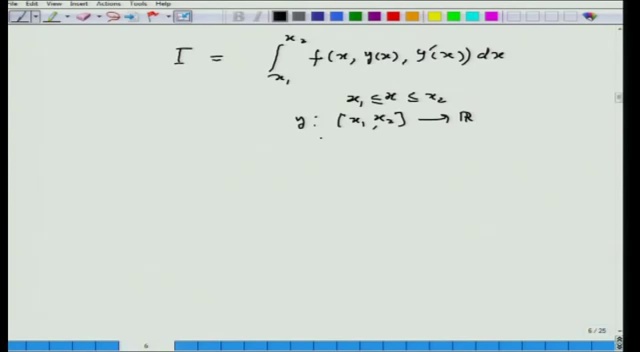 File Edit View Insert Actions Tools Help
I = ∫_{x_1}^{x_2} f(x, y(x), y'(x)) dx
x_1 ≤ x ≤ x_2
y : [x_1, x_2] ⟶ ℝ
6 / 25
6